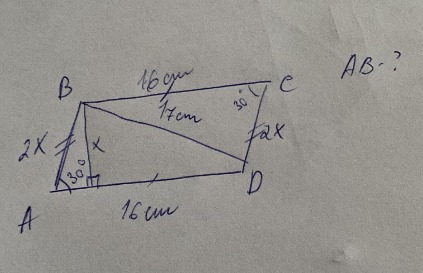 16cm
B
C
AB-?
17cm
30°
2x
x
2x
30°
D
A
16cm